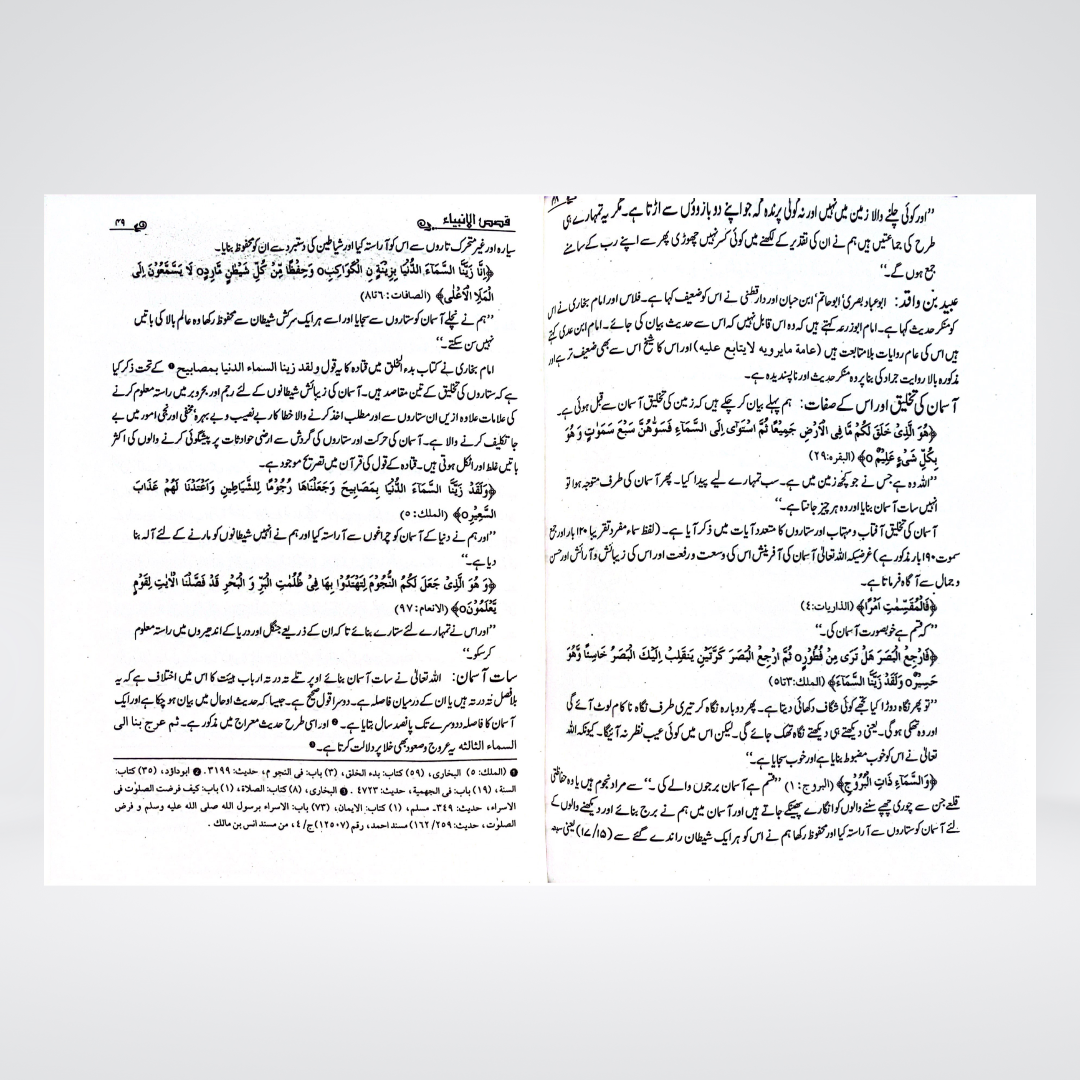 ۴۸
’’اور کوئی چلنے والا زمین میں نہیں اور نہ کوئی پرندہ کہ جو اپنے دو بازوؤں سے اڑتا ہے۔ مگر یہ تمہارے ہی
طرح کی جماعتیں ہیں ہم نے ان کی تقدیر کے لکھنے میں کوئی کسر نہیں چھوڑی پھر سے اپنے رب کے سامنے
جمع ہوں گے۔‘‘
عبید بن واقد: ابوعباد بصری‘ ابوحاتم‘ ابن حبان اور دارقطنی نے اس کو ضعیف کہا ہے۔ فلاس اور امام بخاری نے اس
کو منکر حدیث کہا ہے۔ امام ابوزرعہ کہتے ہیں کہ وہ اس قابل نہیں کہ اس سے حدیث بیان کی جائے۔ امام ابن عدی کہتے
ہیں اس کی عام روایات بلا متابعت ہیں (عامة مايرويه لايتابع عليه) اور اس کا شیخ اس سے بھی ضعیف تر ہے اور
مذکورہ بالا روایت جراد کی بنا پر وہ منکر حدیث اور ناپسندیدہ ہے۔
آسمان کی تخلیق اور اس کے صفات: ہم پہلے بیان کر چکے ہیں کہ زمین کی تخلیق آسمان سے قبل ہوئی ہے۔
﴿هُوَ الَّذِىْ خَلَقَ لَكُمْ مَّا فِى الْاَرْضِ جَمِيْعًا ثُمَّ اسْتَوٰٓى اِلَى السَّمَآءِ فَسَوّٰهُنَّ سَبْعَ سَمٰوٰتٍ وَهُوَ
بِكُلِّ شَىْءٍ عَلِيْمٌ o﴾ (البقره:۲۹)
’’اللہ وہ ہے جس نے جو کچھ زمین میں ہے۔ سب تمہارے لیے پیدا کیا۔ پھر آسمان کی طرف متوجہ ہوا تو
انہیں سات آسمان بنایا اور وہ ہر چیز جانتا ہے۔‘‘
آسمان کی تخلیق آفتاب و مہتاب اور ستاروں کا متعدد آیات میں ذکر آیا ہے۔ (لفظ سماء مفرد تقریبا ۱۲۰ بار اور جمع
سموت ۱۹۰ بار مذکور ہے) غرضیکہ اللہ تعالیٰ آسمان کی آفرینش اس کی وسعت و رفعت اور اس کی زیبائش و آرائش اور حسن
و جمال سے آگاہ فرماتا ہے۔
﴿فَالْمُقَسِّمٰتِ اَمْرًا﴾ (الذاريات:٤)
’’کہ قسم ہے خوبصورت آسمان کی۔‘‘
﴿فَارْجِعِ الْبَصَرَ هَلْ تَرٰى مِنْ فُطُوْرٍo ثُمَّ ارْجِعِ الْبَصَرَ كَرَّتَيْنِ يَنْقَلِبْ اِلَيْكَ الْبَصَرُ خَاسِئًا وَّهُوَ
حَسِيْرٌo وَلَقَدْ زَيَّنَّا السَّمَآءَ﴾ (الملك:۳تا۵)
’’تو پھر نگاہ دوڑا کیا تجھے کوئی شگاف دکھائی دیتا ہے۔ پھر دوبارہ نگاہ کر تیری طرف نگاہ ناکام لوٹ آئے گی
اور وہ تھکی ہوگی۔ یعنی دیکھتے ہی دیکھتے نگاہ تھک جائے گی۔ لیکن اس میں کوئی عیب نظر نہ آئیگا۔ کیونکہ اللہ
تعالیٰ نے اس کو خوب مضبوط بنایا ہے اور خوب سجایا ہے۔‘‘
﴿وَالسَّمَآءِ ذَاتِ الْبُرُوْجِ﴾ (البروج:۱) ’’قسم ہے آسمان برجوں والے کی۔‘‘ سے مراد نجوم ہیں یا وہ حفاظتی
قلعے جن سے چوری چھپے سننے والوں کو انگارے پھینکے جاتے ہیں اور آسمان میں ہم نے برج بنائے اور دیکھنے والوں کے
لئے آسمان کو ستاروں سے آراستہ کیا اور محفوظ رکھا ہم نے اس کو ہر ایک شیطان راندے گئے سے (۱۷/۱۵) یعنی سبعہ
قصص الانبیاء
۴۹
سیارہ اور غیر متحرک تاروں سے اس کو آراستہ کیا اور شیاطین کی دستبرد سے ان کو محفوظ بنایا۔
﴿اِنَّا زَيَّنَّا السَّمَآءَ الدُّنْيَا بِزِيْنَةِ نِ الْكَوَاكِبِo وَحِفْظًا مِّنْ كُلِّ شَيْطٰنٍ مَّارِدٍo لَا يَسَّمَّعُوْنَ اِلَى
الْمَلَاِ الْاَعْلٰى﴾ (الصافات:٦تا٨)
’’ہم نے نچلے آسمان کو ستاروں سے سجایا اور اسے ہر ایک سرکش شیطان سے محفوظ رکھا وہ عالم بالا کی باتیں
نہیں سن سکتے۔‘‘
امام بخاری نے کتاب بدء الخلق میں قتادہ کا یہ قول ولقد زينا السماء الدنيا بمصابيح ❶ کے تحت ذکر کیا
ہے کہ ستاروں کی تخلیق کے تین مقاصد ہیں۔ آسمان کی زیبائش شیطانوں کے لئے رجم اور بحر و بر میں راستہ معلوم کرنے
کی علامات علاوہ ازیں ان ستاروں سے اور مطلب اخذ کرنے والا خطاکار بے نصیب و بے بہرہ مخفی اور نجی امور میں بے
جا تکلیف کرنے والا ہے۔ آسمان کی حرکت اور ستاروں کی گروش سے ارضی حوادثات پر پیشگوئی کرنے والوں کی اکثر
باتیں غلط اور اٹکل ہوتی ہیں۔ قتادہ کے قول کی قرآن میں تصریح موجود ہے۔
﴿وَلَقَدْ زَيَّنَّا السَّمَآءَ الدُّنْيَا بِمَصَابِيْحَ وَجَعَلْنَاهَا رُجُوْمًا لِلشَّيَاطِيْنِ وَاَعْتَدْنَا لَهُمْ عَذَابَ
السَّعِيْرِo﴾ (الملك:٥)
’’اور ہم نے دنیا کے آسمان کو چراغوں سے آراستہ کیا اور ہم نے انہیں شیطانوں کو مارنے کے لئے آلہ بنا
دیا ہے۔‘‘
﴿وَ هُوَ الَّذِىْ جَعَلَ لَكُمُ النُّجُوْمَ لِتَهْتَدُوْا بِهَا فِىْ ظُلُمٰتِ الْبَرِّ وَ الْبَحْرِ قَدْ فَصَّلْنَا الْاٰيٰتِ لِقَوْمٍ
يَّعْلَمُوْنَo﴾ (الانعام:۹۷)
’’اور اس نے تمہارے لئے ستارے بنائے تاکہ ان کے ذریعے جنگل اور دریا کے اندھیروں میں راستہ معلوم
کر سکو۔‘‘
سات آسمان: اللہ تعالیٰ نے سات آسمان بنائے اوپر تلے تہ در تہ ارباب ہیئت کا اس میں اختلاف ہے کہ یہ
بلا فصل تہ در تہ ہیں یا ان کے درمیان فاصلہ ہے۔ دوسرا قول صحیح ہے۔ جیسا کہ حدیث اوعال میں بیان ہو چکا ہے اور ایک
آسمان کا فاصلہ دوسرے تک پانصد سال بتایا ہے۔ ❷ اور اسی طرح حدیث معراج میں مذکور ہے۔ ثم عرج بنا الى
السماء الثالثه یہ عروج و صعود بھی خلا پر دلالت کرتا ہے۔ ❸
❶ (الملك: ٥) البخارى، (٥٩) كتاب: بدء الخلق، (٣) باب: فى النجوم، حديث: ٣١٩٩۔ ❷ ابوداؤد، (٣٥) كتاب:
السنة، (١٩) باب: فى الجهمية، حديث: ٤٧٢٣ . ❸ البخارى، (٨) كتاب: الصلاة، (١) باب: كيف فرضت الصلوٰت فى
الاسراء، حديث: ٣٤٩۔ مسلم، (١) كتاب: الايمان، (٧٣) باب: الاسراء برسول الله صلى الله عليه وسلم و فرض
الصلوٰت، حديث: ١٦٢/٢٥٩) مسند احمد، رقم (١٢٥٠٧) ج/٤، من مسند انس بن مالك .